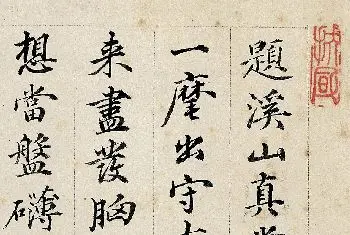 題溪山真
一麾出守
来盡發胸
想當盤礴